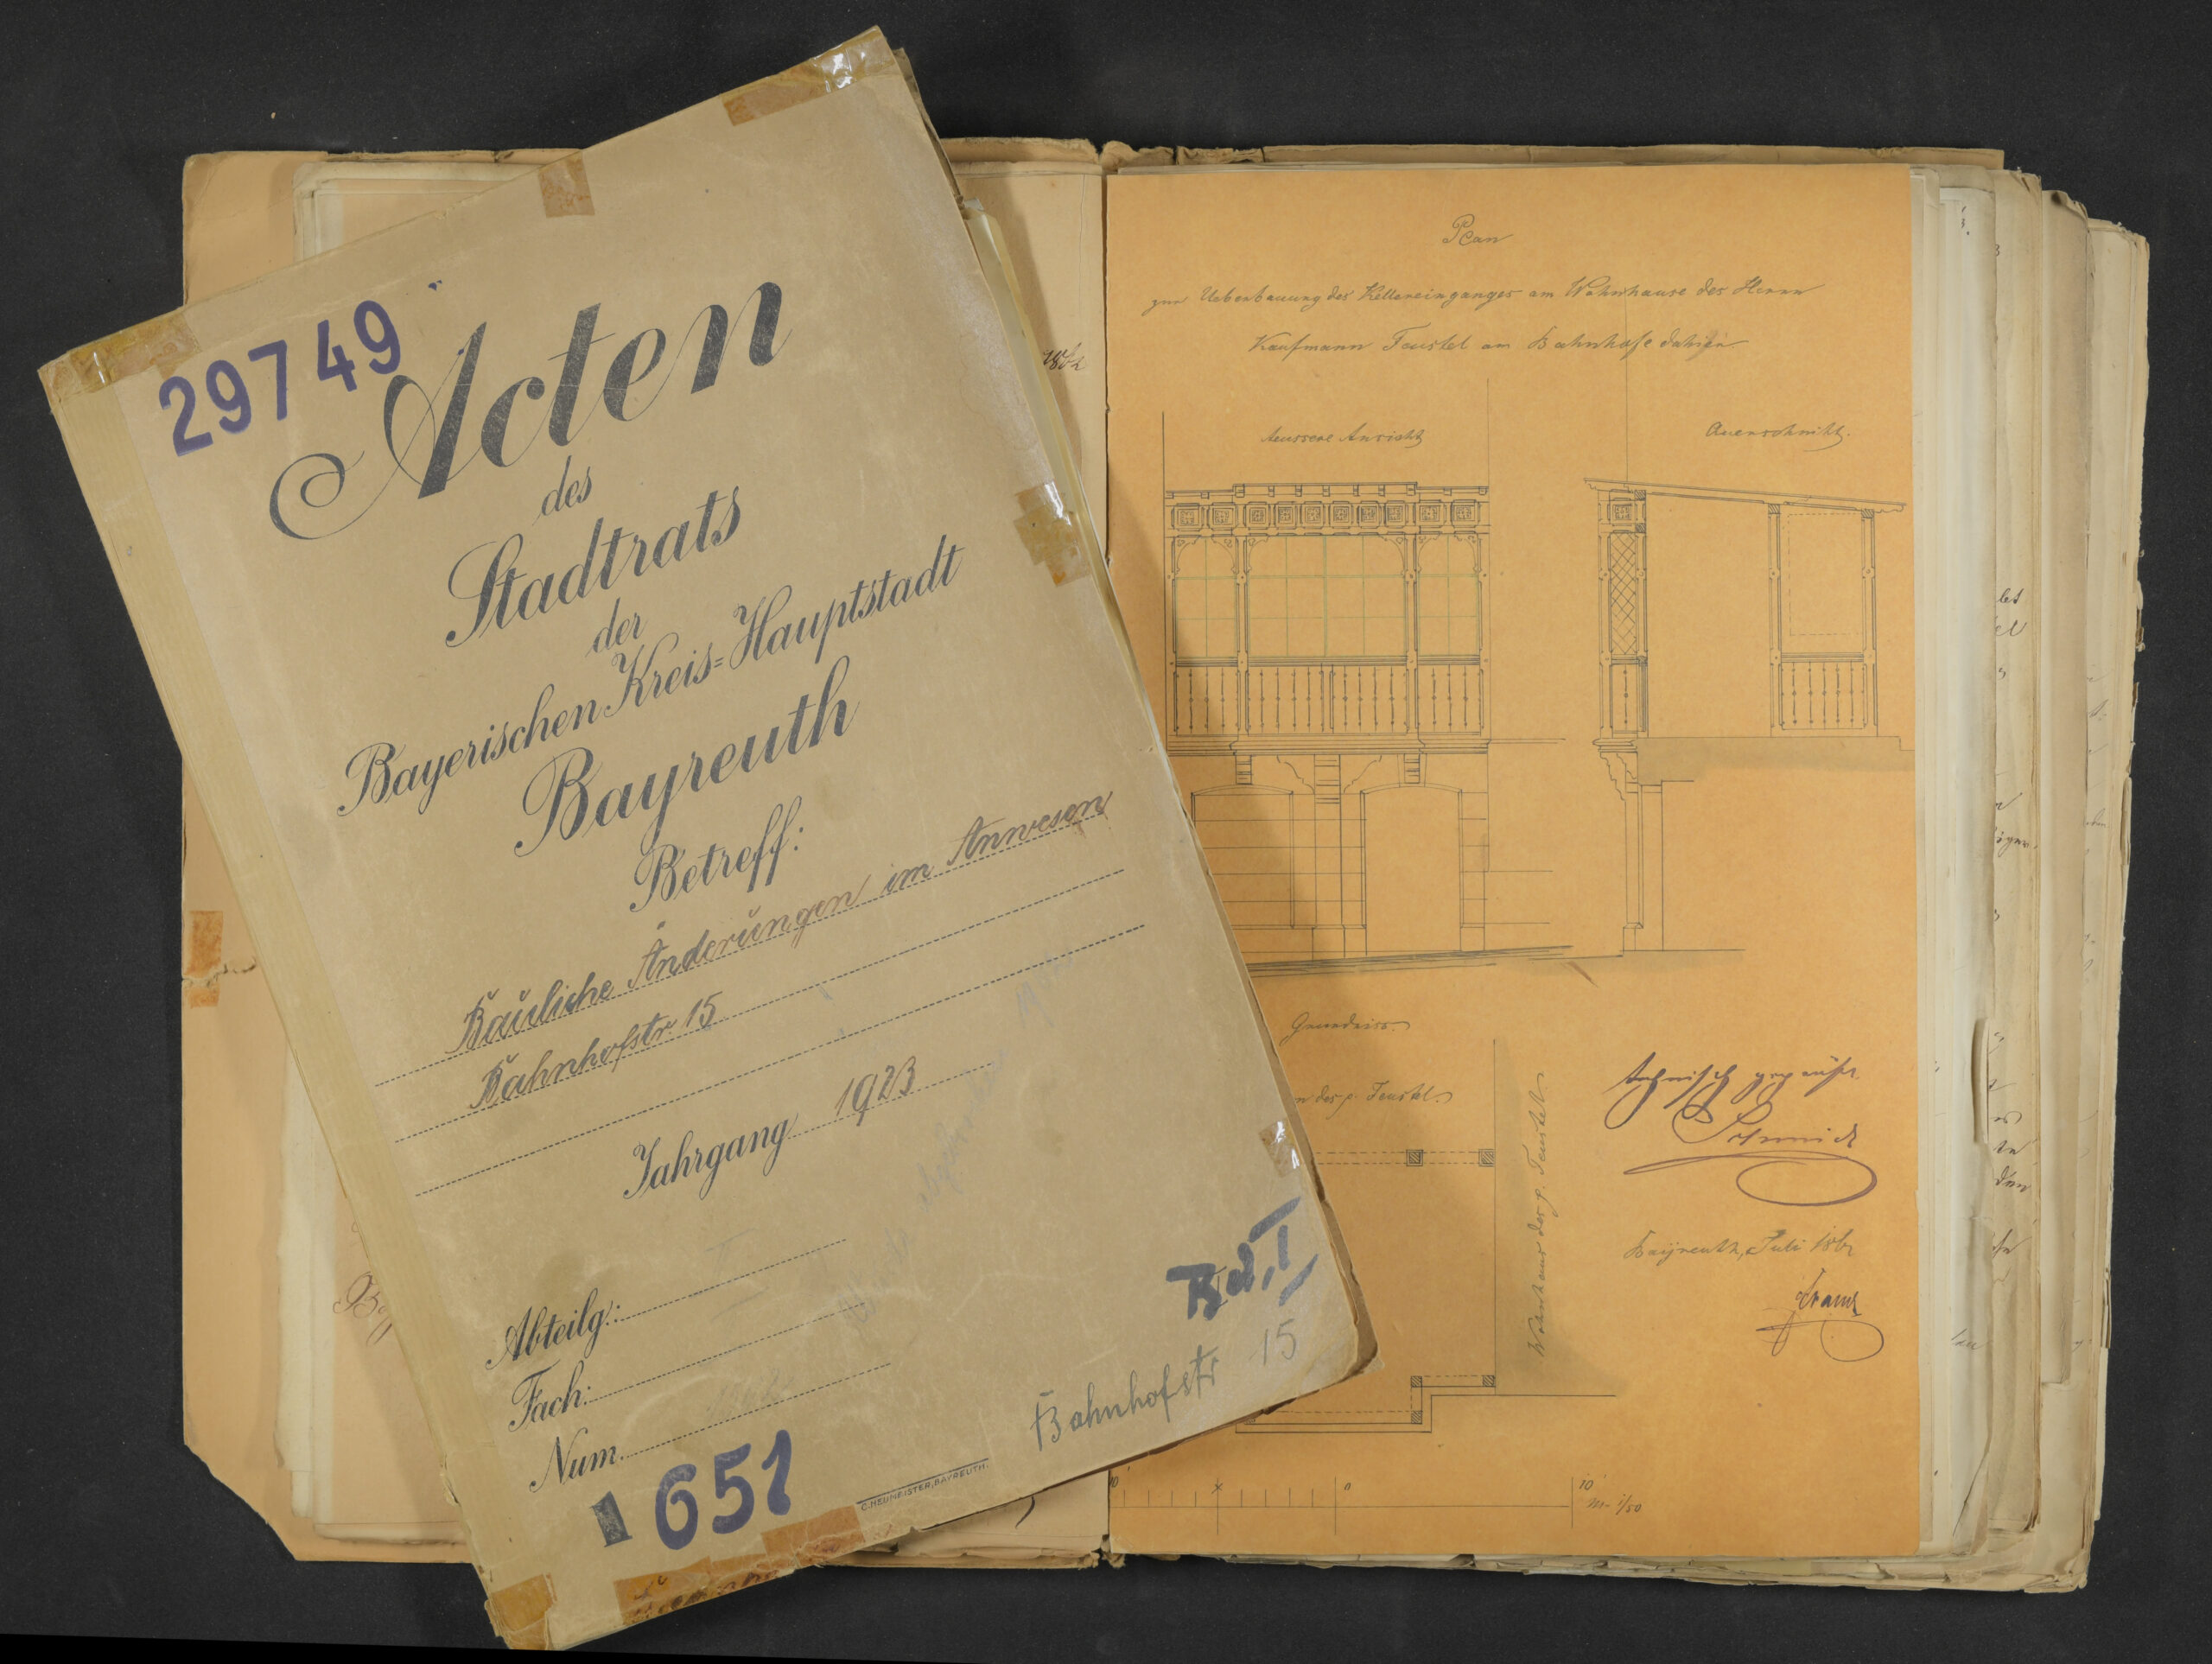 29749
Acten
des
Stadtrats
der
Bayerischen Kreis=Hauptstadt
Bayreuth
Betreff:
Bauliche Änderungen im Anwesen
Bahnhofstr. 15
Jahrgang 1923
Abteilg.:
Fach:
Num.
1651
C. HEUMEISTER, BAYREUTH.
Bd. I
Bahnhofstr 15
Plan
zur Ueberbauung des Kellereinganges am Wohnhause des Herrn
Kaufmann Feustel am Bahnhofe dahier
Aeussere Ansicht
Querschnitt.
Grundriss.
des p. Feustel.
Wohnhaus des p. Feustel
technisch geprüft
Schmidt
Bayreuth, Juli
0
10
m- 1/50